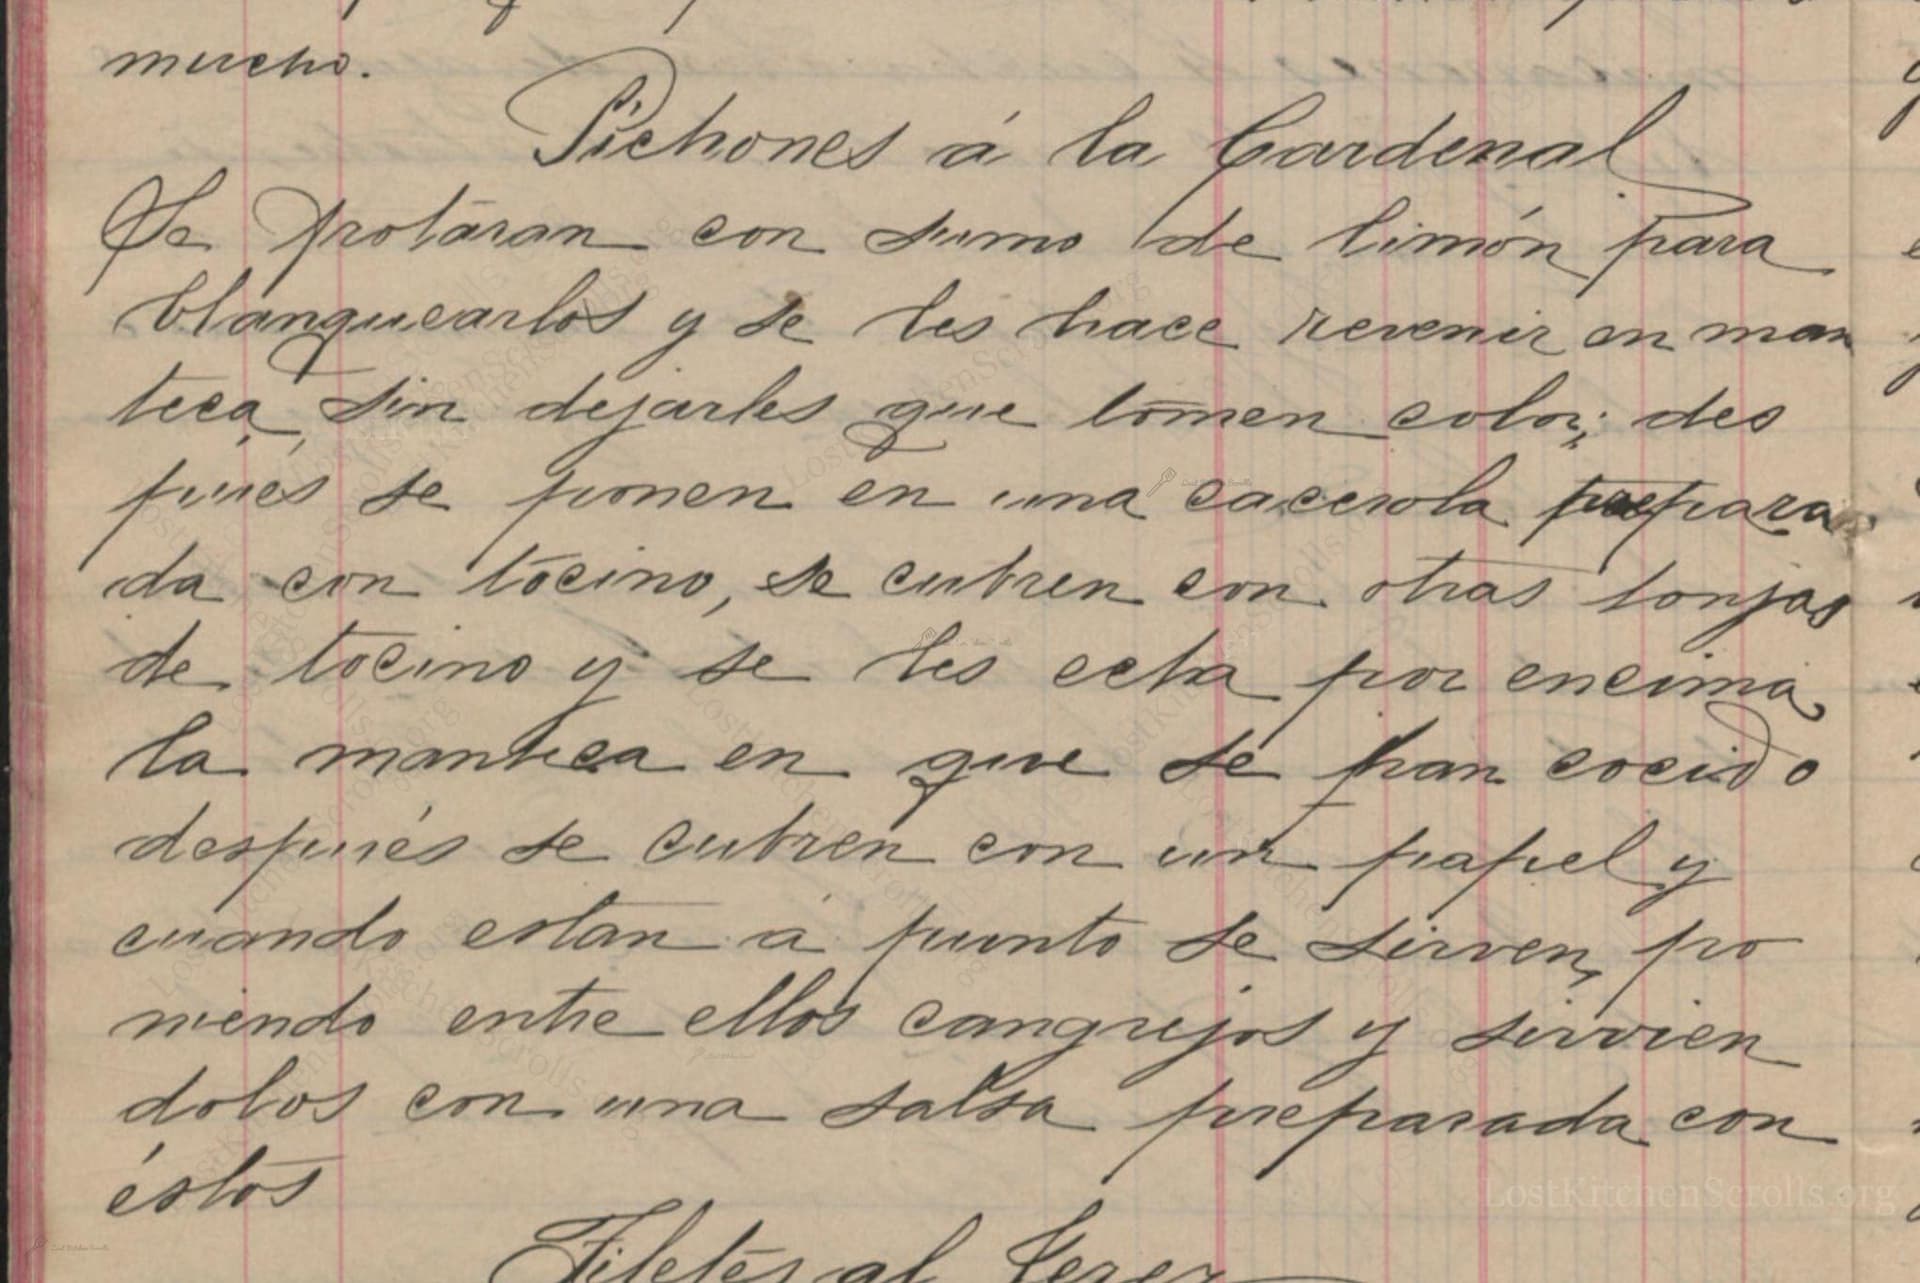 mucho.
Pichones á la Cardenal
Se frotaran con sumo de limón para
blanquearlos y se les hace revenir en man
teca, sin dejarles que tomen color; des
pués se ponen en una cacerola prepara
da con tocino, se cubren con otras lonjas
de tocino y se les echa por encima
la manteca en que se han cocido
después se cubren con un papel y
cuando estan á punto se sirven, po
niendo entre ellos cangrejos y sirvien
dolos con una salsa preparada con
éstos
Filetes al Jerez
LostKitchenScrolls.org